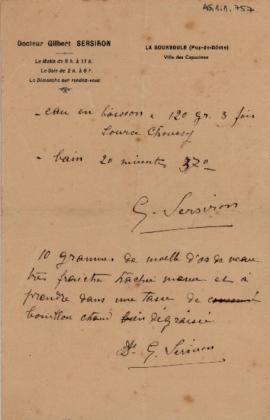 AS.R.R. 757
Docteur Gilbert SERSIRON
LA BOURBOULE (Puy-de-Dôme)
Ville des Capucines
Le Matin de 9 h. à 11 h.
Le Soir de 2 h. à 6 h.
Le Dimanche sur rendez-vous
- eau en boisson 120 gr. 3 fois
Source Choussy
- bain 20 minutes 370
G. Sersiron
10 grammes de moelle d'os de veau
très fraiche hachée menu et à
prendre dans une tasse de
bouillon chaud bien dégraissé
Dr G. Sersiron